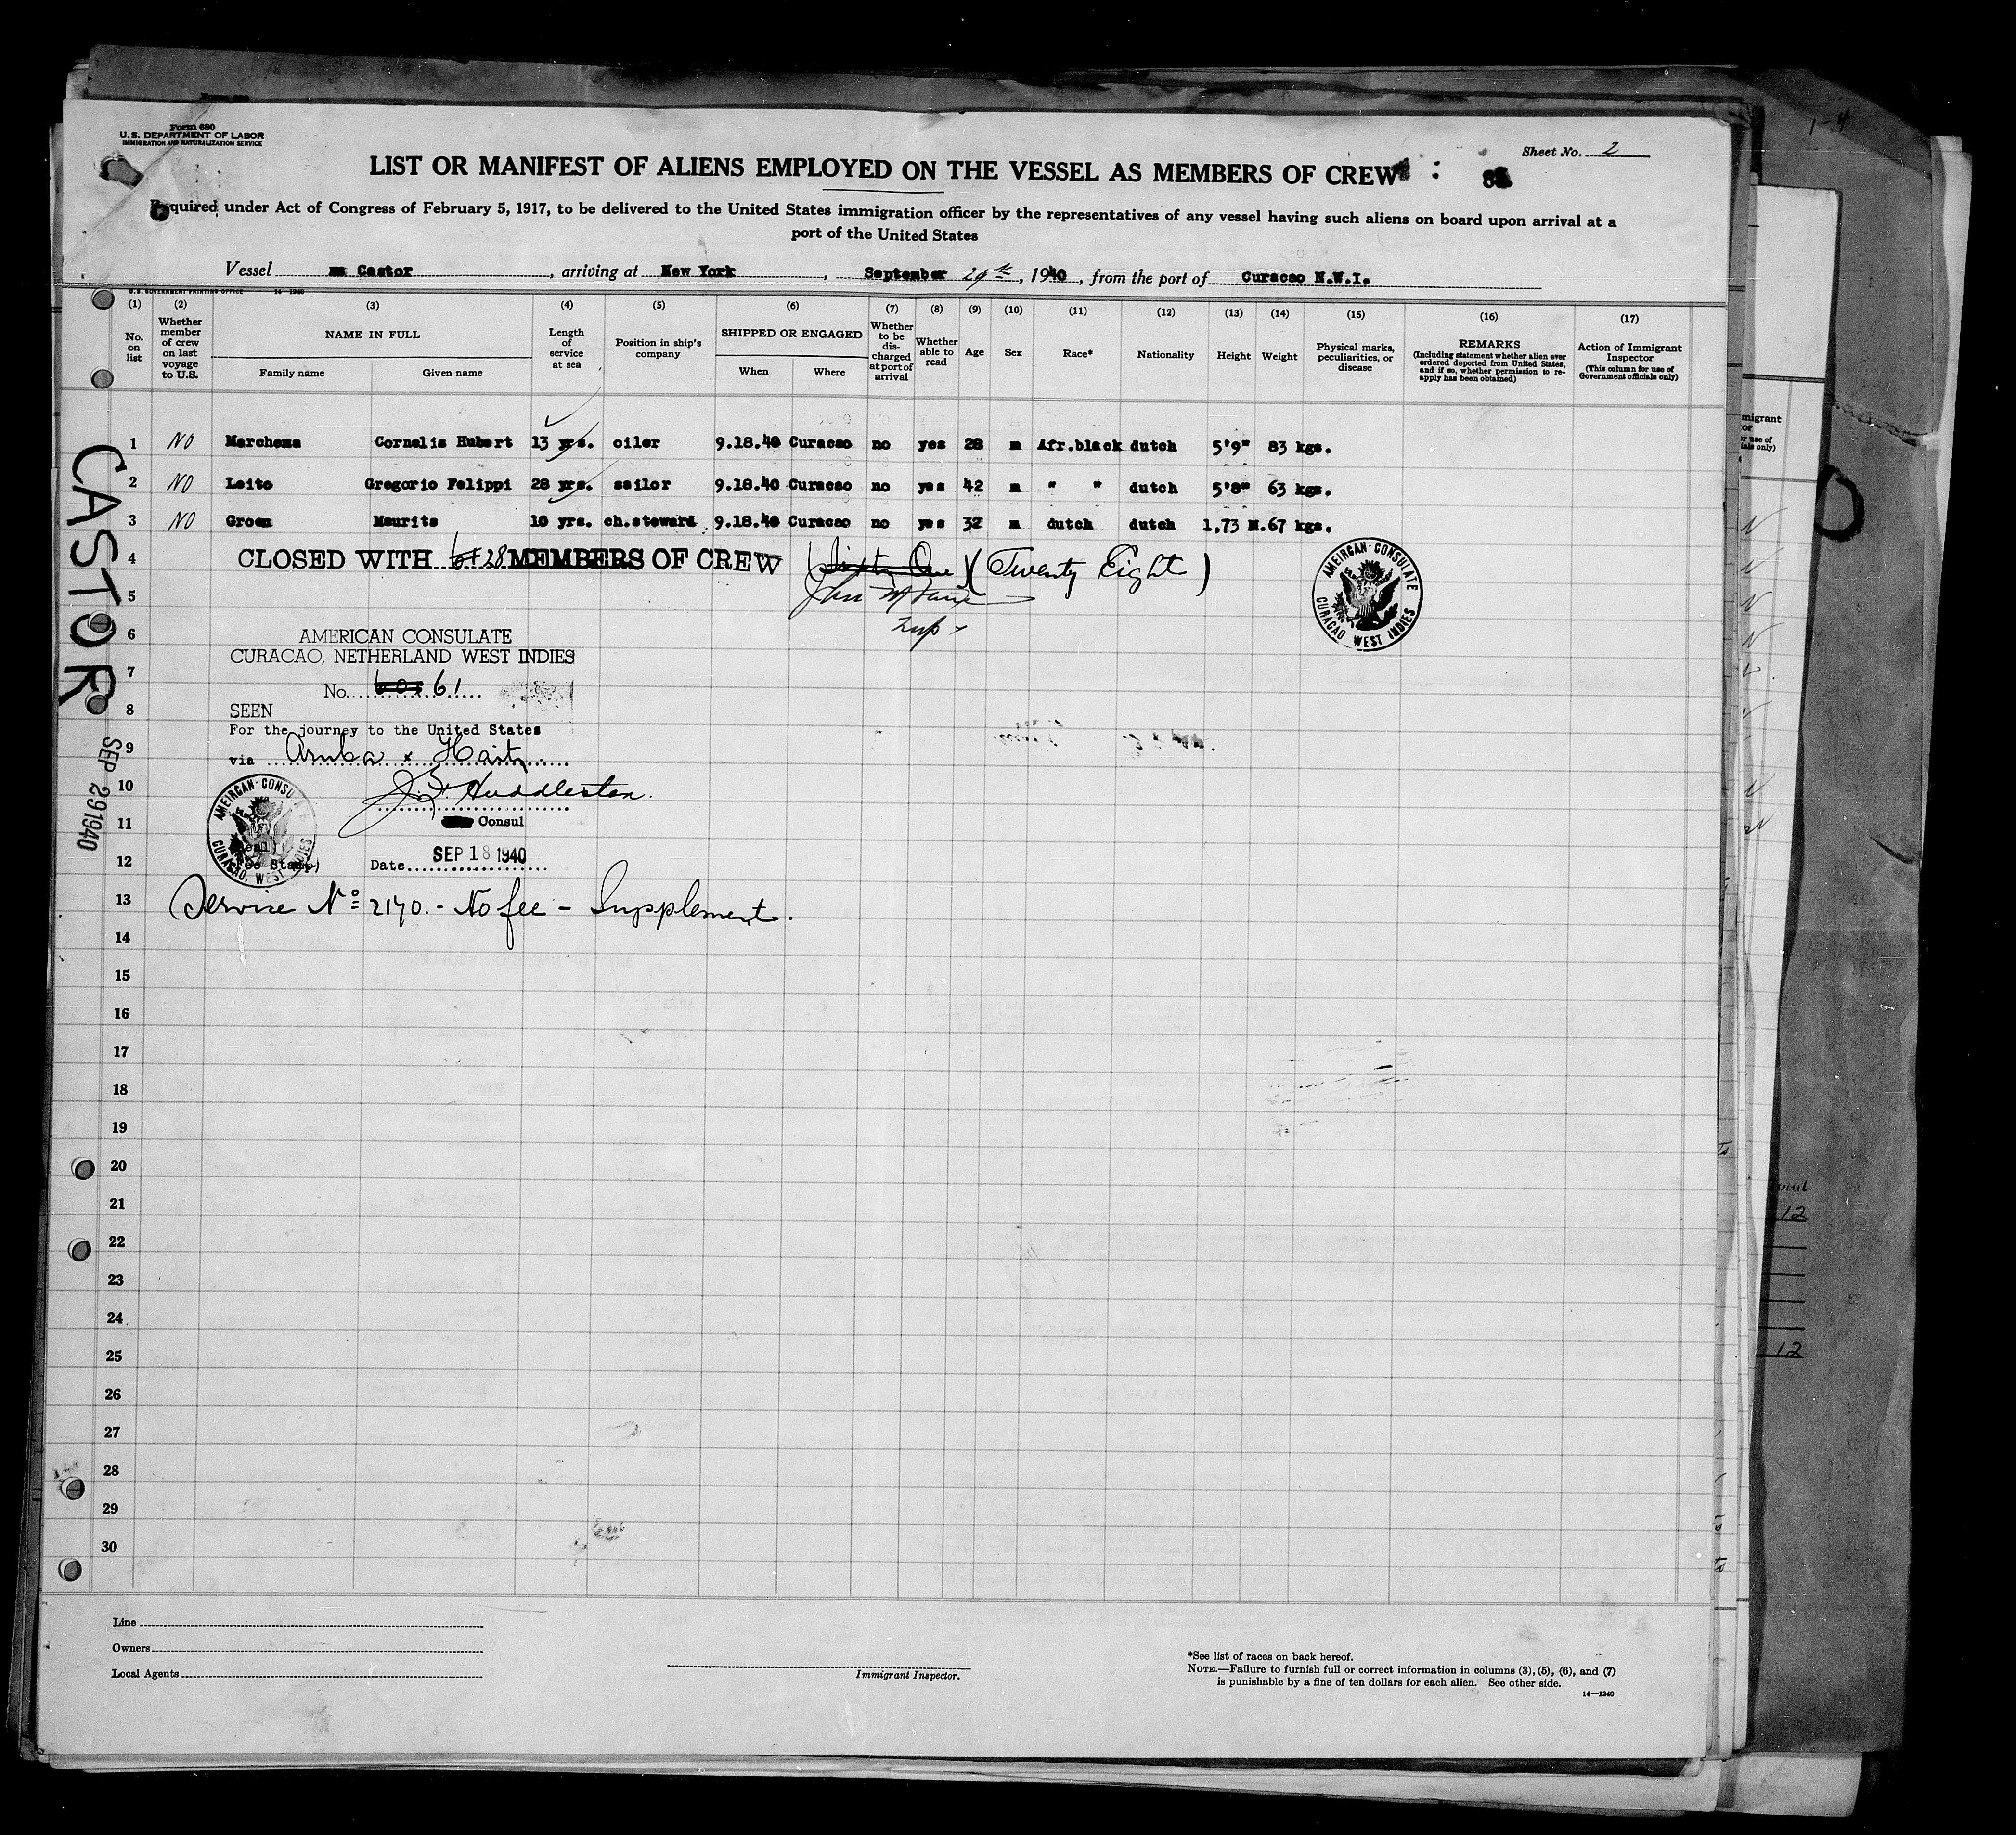 Form 680
U.S. DEPARTMENT OF LABOR
IMMIGRATION AND NATURALIZATION SERVICE
Sheet No. 2
LIST OR MANIFEST OF ALIENS EMPLOYED ON THE VESSEL AS MEMBERS OF CREW
Required under Act of Congress of February 5, 1917, to be delivered to the United States immigration officer by the representatives of any vessel having such aliens on board upon arrival at a
port of the United States
Vessel Castor, arriving at New York, September 29th, 1940, from the port of Curacao N.W.I.
U.S. GOVERNMENT PRINTING OFFICE 14-1240
(1) (2) (3) (4) (5) (6) (7) (8) (9) (10) (11) (12) (13) (14) (15) (16) (17)
No. on list
Whether member of crew on last voyage to U.S.
NAME IN FULL
Family name
Given name
Length of service at sea
Position in ship's company
SHIPPED OR ENGAGED
When
Where
Whether to be discharged at port of arrival
Whether able to read
Age
Sex
Race*
Nationality
Height
Weight
Physical marks, peculiarities, or disease
REMARKS
(Including statement whether alien ever ordered deported from United States, and if so, whether permission to re-apply has been obtained)
Action of Immigrant Inspector
(This column for use of Government officials only)
1 NO Marchena Cornelis Hubert 13 yrs. oiler 9.18.40 Curacao no yes 28 m Afr.black dutch 5'9" 83 kgs.
2 NO Leito Gregorio Felippi 28 yrs. sailor 9.18.40 Curacao no yes 42 m " " dutch 5'8" 63 kgs.
3 NO Groen Maurits 10 yrs. ch.steward 9.18.40 Curacao no yes 32 m dutch dutch 1,73 M. 67 kgs.
4 CLOSED WITH 61 28 MEMBERS OF CREW (Sixty One) (Twenty Eight)
5
6
AMERICAN CONSULATE
CURACAO, NETHERLAND WEST INDIES
7
No. 61
8
SEEN
For the journey to the United States
9
via Aruba & Haiti
10
J.F. Huddleston
11
Consul
12
Date SEP 18 1940
13
Service No 2170. - No fee - Supplement.
14
15
16
17
18
19
20
21
22
23
24
25
26
27
28
29
30
AMEIRCAN CONSULATE
CURACAO WEST INDIES
AMEIRCAN CONSULATE
CURACAO, WEST INDIES
CASTOR
SEP 29 1940
Line
Owners
Local Agents
Immigrant Inspector.
*See list of races on back hereof.
NOTE.—Failure to furnish full or correct information in columns (3), (5), (6), and (7)
is punishable by a fine of ten dollars for each alien. See other side.
14—1240
1-4
12
12